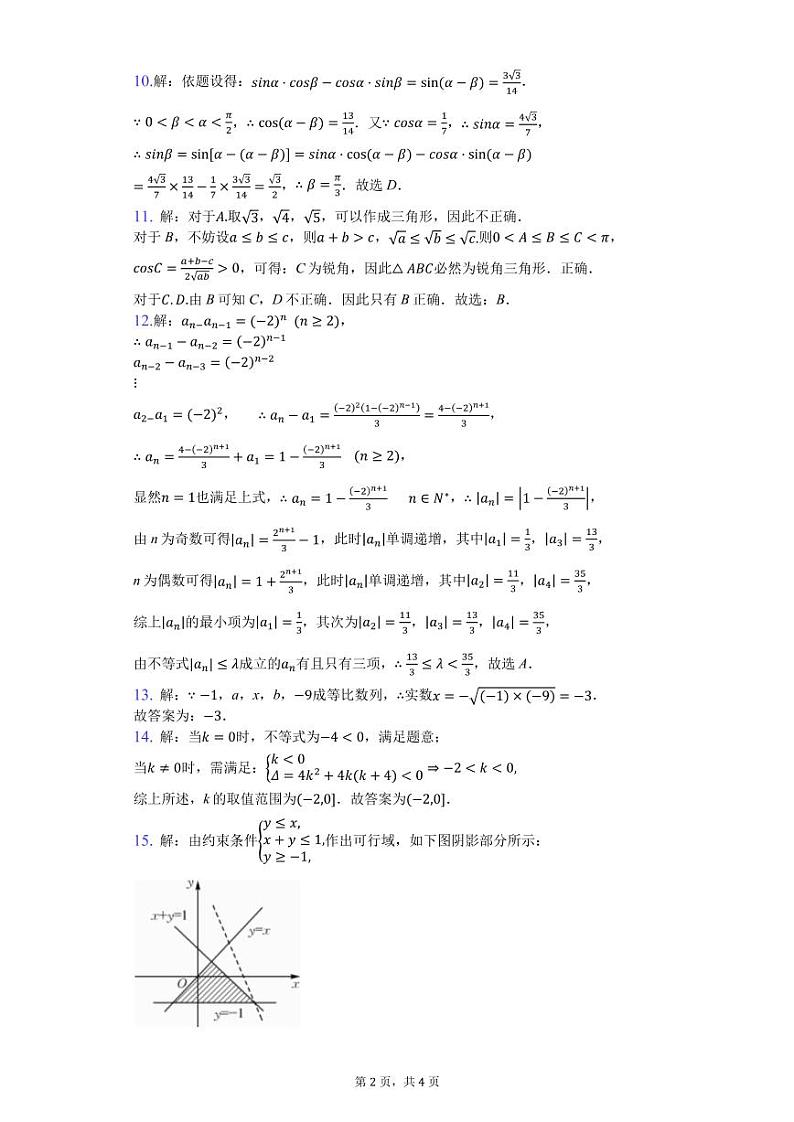 10.解：依题设得：sinα·cosβ−cosα·sinβ=sin(α−β)=3√3/14．
∵ 0<β<α<π/2，∴cos(α−β)=13/14．又∵ cosα=1/7，∴sinα=4√3/7，
∴sinβ=sin[α−(α−β)]=sinα·cos(α−β)−cosα·sin(α−β)
=4√3/7×13/14−1/7×3√3/14=√3/2，∴β=π/3．故选 D．
11. 解：对于A.取√3，√4，√5，可以作成三角形，因此不正确．
对于 B，不妨设a≤b≤c，则a+b>c，√a≤√b≤√c.则0<A≤B≤C<π，
cosC=(a+b−c)/(2√ab)>0，可得：C 为锐角，因此△ABC必然为锐角三角形．正确．
对于C.D.由 B 可知 C，D 不正确．因此只有 B 正确．故选：B．
12.解：aₙ₋aₙ₋₁=(−2)ⁿ (n≥2)，
∴aₙ₋₁−aₙ₋₂=(−2)ⁿ⁻¹
aₙ₋₂−aₙ₋₃=(−2)ⁿ⁻²
⋮
a₂₋a₁=(−2)²， ∴aₙ−a₁=(−2)²(1−(−2)ⁿ⁻¹)/3=(4−(−2)ⁿ⁺¹)/3，
∴aₙ=(4−(−2)ⁿ⁺¹)/3+a₁=1−(−2)ⁿ⁺¹/3 (n≥2)，
显然n=1也满足上式，∴aₙ=1−(−2)ⁿ⁺¹/3 n∈N*，∴|aₙ|=|1−(−2)ⁿ⁺¹/3|，
由 n 为奇数可得|aₙ|=2ⁿ⁺¹/3−1，此时|aₙ|单调递增，其中|a₁|=1/3，|a₃|=13/3，
n 为偶数可得|aₙ|=1+2ⁿ⁺¹/3，此时|aₙ|单调递增，其中|a₂|=11/3，|a₄|=35/3，
综上|aₙ|的最小项为|a₁|=1/3，其次为|a₂|=11/3，|a₃|=13/3，|a₄|=35/3，
由不等式|aₙ|≤λ成立的aₙ有且只有三项，∴13/3≤λ<35/3，故选 A．
13. 解：∵−1，a，x，b，−9成等比数列，∴实数x=−√((−1)×(−9))=−3．
故答案为：−3．
14. 解：当k=0时，不等式为−4<0，满足题意；
当k≠0时，需满足：{k<0 Δ=4k²+4k(k+4)<0⇒−2<k<0,
综上所述，k 的取值范围为(−2,0]．故答案为(−2,0]．
15. 解：由约束条件{y≤x, x+y≤1, y≥−1,作出可行域，如下图阴影部分所示：
y
x+y=1
y=x
O
x
y=−1
第 2 页，共 4 页